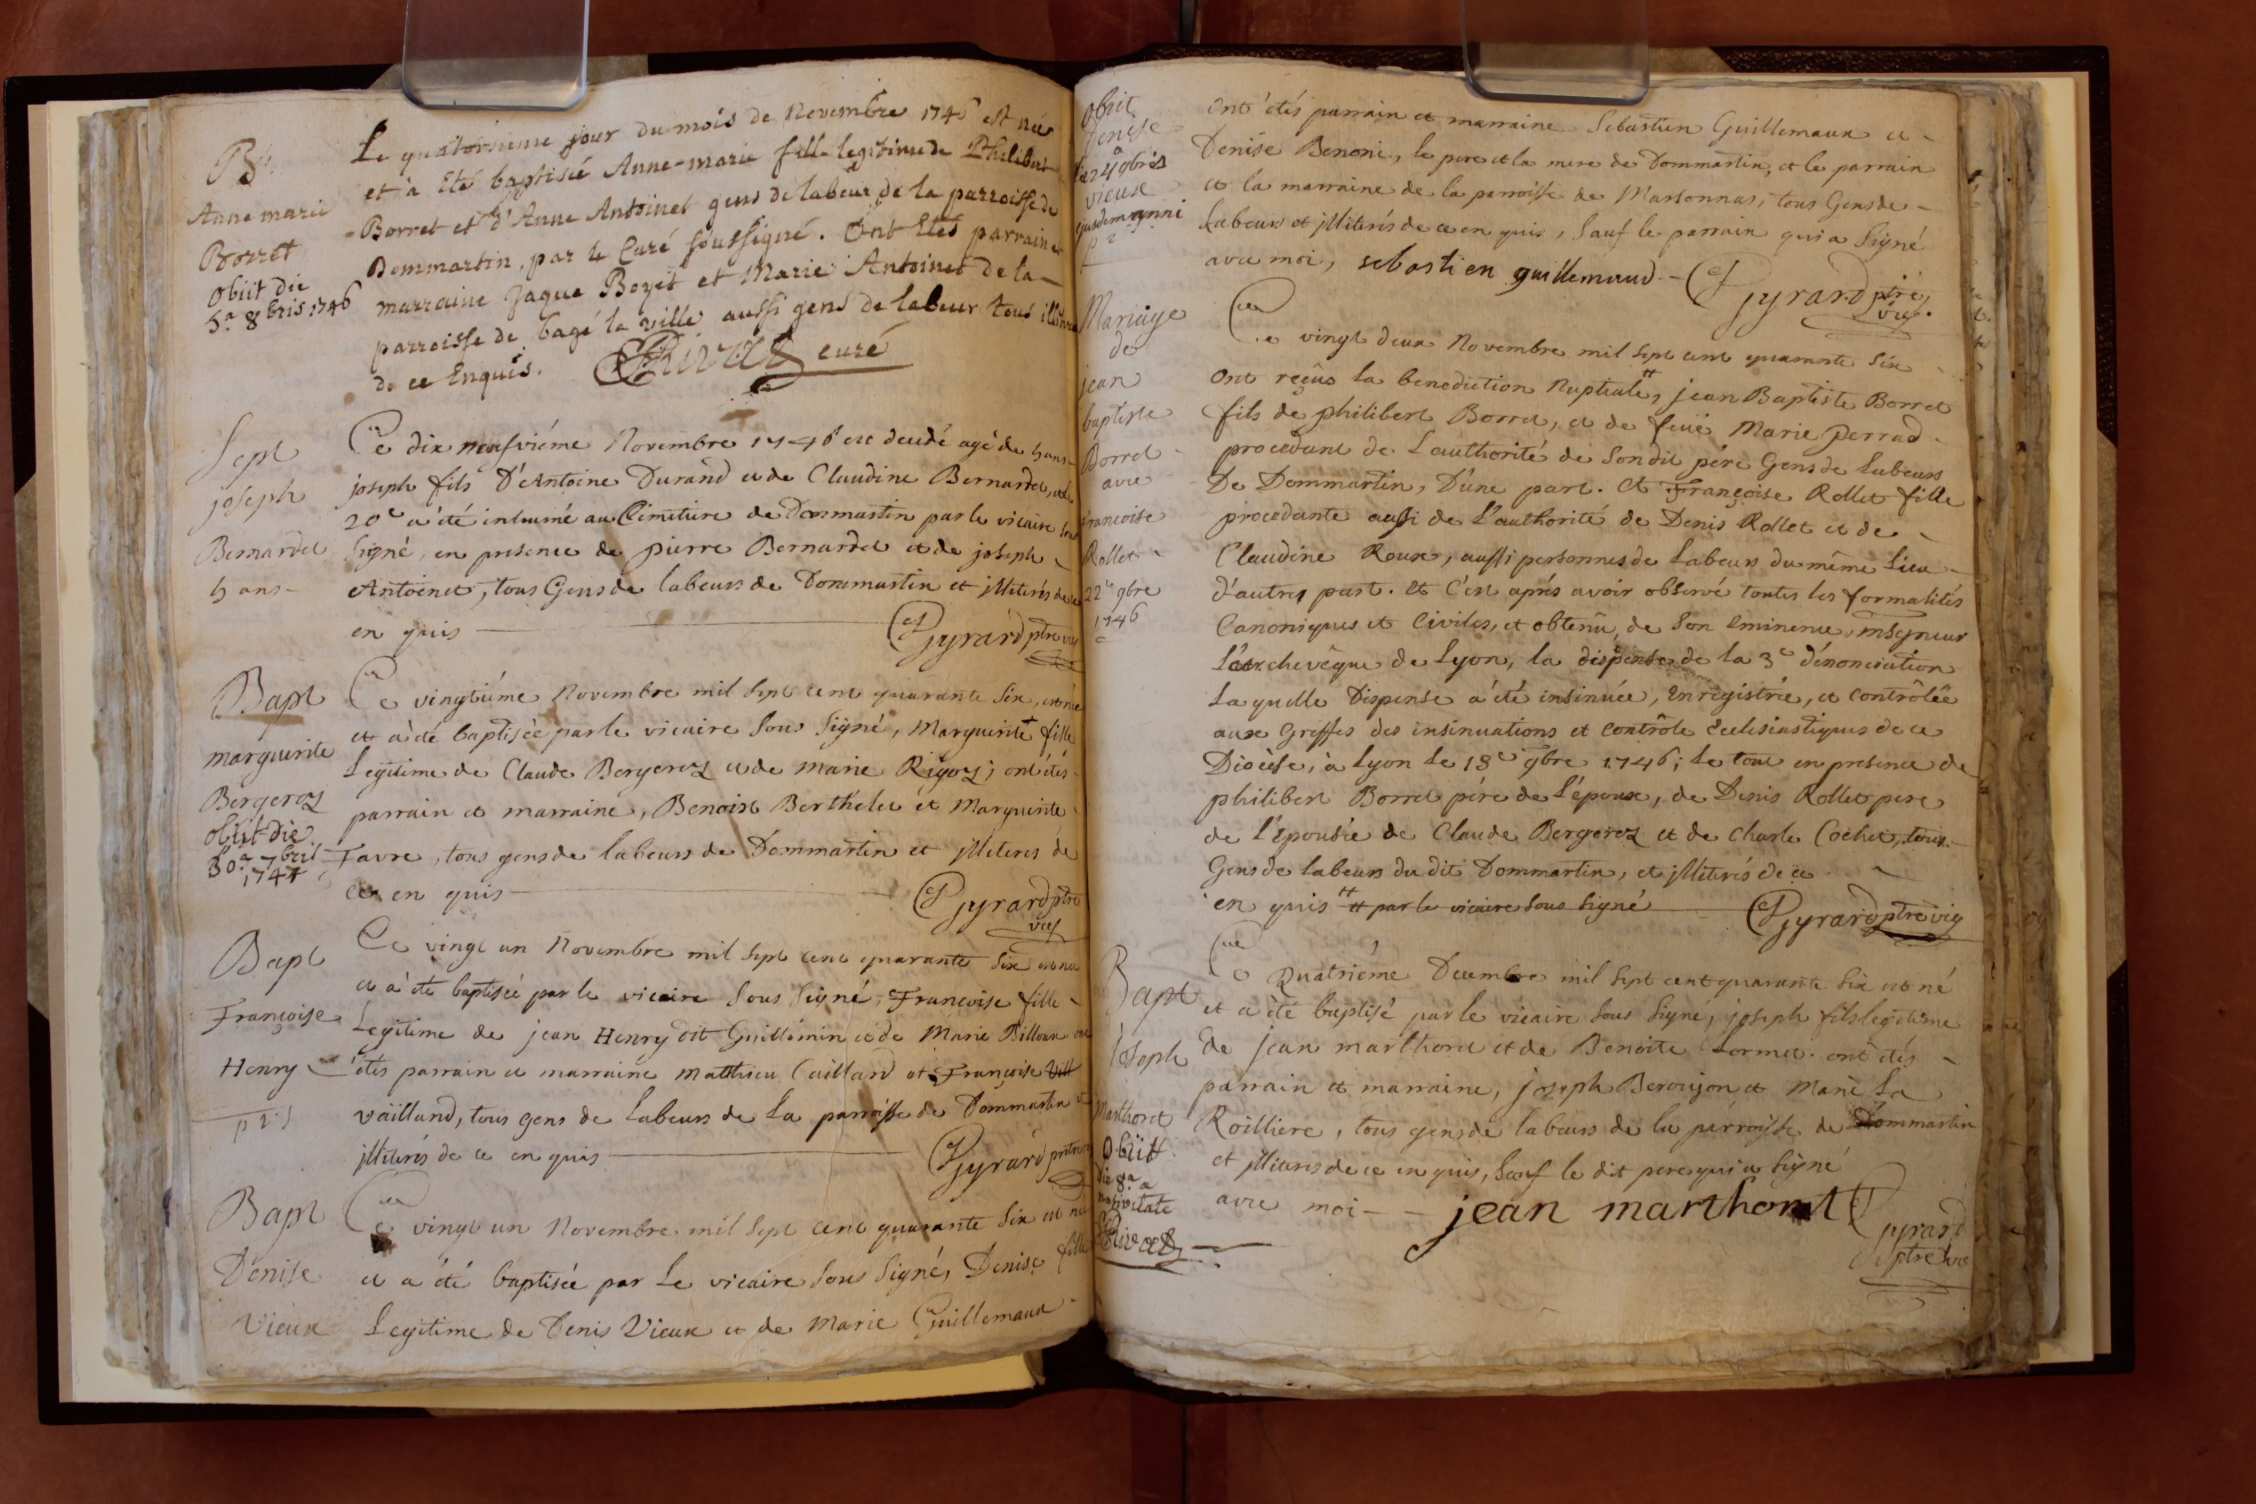 Bt.
Anne marie
Borret
obiit die
5a 8bris 1746
Le quatorsieme jour du mois de Novembre 1746 est née
et à Eté baptisée Anne-marie fille legitime de Philibert
Borret et d'Anne Antoinet gens de labeur de la parroisse de
Dommartin, par le Curé soussigné. Ont Etés parrain et
marraine Jaque Boyet et Marie Antoinet de la
parroisse de bagé la ville aussi gens de labeur tous
de ce Enquis. curé
Sept
joseph
Bernardet
5 ans
Ce dix neufviéme Novembre 1746 est decedé agé de 5 ans
joseph fils D'Antoine Durand et de Claudine Bernardet, et le
20e a été inhumé au Cimetiere de Dommartin par le vicaire sous
signé, en presence de pierre Bernardet et de joseph
Antoinet, tous Gens de labeurs de Dommartin et jlliterés de ce
en quis Gyrard ptre vic
Bapt
marguerite
Bergeroz
obiit die
30a 7bris
174
Ce vingtiéme Novembre mil sept cent quarante six, est née
et a été baptisée par le vicaire sous signé, Marguerite fille
Legitime de Claude Bergeroz et de marie Rigoz; ont étés
parrain et marraine, Benoist Berthelet et Marguerite
Favre, tous gens de labeurs de Dommartin et jlliterés de
ce en quis Gyrard ptre
vic
Bapt
Françoise
Henry
Ce vingt un Novembre mil sept cent quarante six est née
et a été baptisée par le vicaire sous signé, Francoise fille
Legitime de jean Henry dit Guillemin et de Marie Billoux ont
étés parrain et marraine matthieu Caillard et Françoise
vailland, tous gens de Labeurs de La parroisse de Dommartin et
jlliterés de ce en quis Gyrard
Bapt
Denise
Vieux
Ce vingt un Novembre mil sept cent quarante six est née
et a été baptisée par Le vicaire sous signé, Denise fille
Legitime de Denis Vieux et de Marie Guillemaux
obiit
Denise
24 9bris
vieux
ejusdem anni
ont étés parrain et marraine Sebastien Guillemaux et
Denise Benoni, le pere et la mere de Dommartin, et le parrain
et la marraine de la parroisse de Marsonnas, tous Gens de
Labeurs et jlliterés de ce en quis, sauf le parrain qui a signé
avec moi, sebastien guillemaud Gyrard ptre
vic.
Mariage
de
jean
baptiste
Borret
avec
francoise
Rollet
22e 9bre
1746
Ce vingt deux Novembre mil sept cent quarante six
Ont reçus la benediction Nuptiale, jean Baptiste Borret
fils de philibert Borret, et de feüe Marie perrad
procedant de L'authorité de Son dit pére Gens de Labeurs
De Dommartin, D'une part. Et Françoise Rollet fille
procedante aussi de L'authorité de Denis Rollet et de
Claudine Roux, aussi personnes de Labeurs du même Lieu
d'autres part. Et C'est aprés avoir observé toutes les formalités
Canoniques et Civiles, et obtenu, de Son Eminence mSgneur
L'archevêque de Lyon, la dispense de la 3e dénonciation
Laquelle Dispense a été insinuée, Enregistrée, et contrôlée
aux Greffes des insinuations et contrôle Ecclesiastiques de ce
Diocèse, à Lyon Le 18e 9bre 1746; Le tout en presence de
philibert Borret pére de l'époux, de Denis Rollet pere
de l'épousée de Claude Bergeroz et de Charle Cochet, tous
Gens de labeurs du dit Dommartin, et jlliterés de ce
en quis par le vicaire sous signé Gyrard ptre vic
Bapt
joseph
Marthoret
Obiit
die 8a a
nativitate
Ce Quatriéme Decembre mil sept cent quarante six est né
et a été baptisé par le vicaire sous signé, joseph fils legitime
de jean marthoret et de Benoite Cormet. ont étés
parrain et marraine, joseph Beroujon et Marie La
Roilliere, tous gens de labeurs de la parroisse de Dommartin
et jlliterés de ce en quis, sauf le dit pere qui a signé
avec moi - - jean marthoret Gyrard
ptre vic